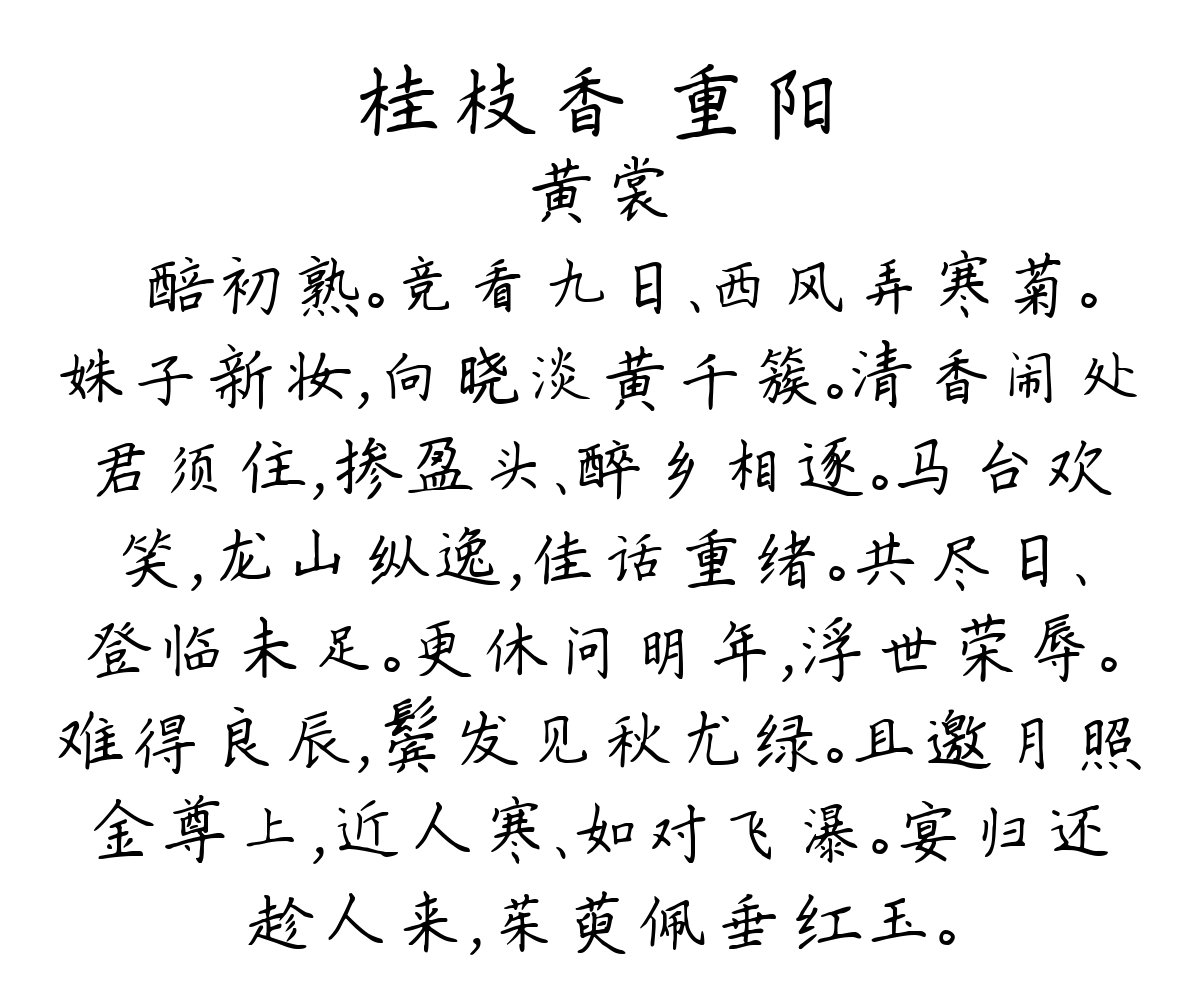 桂枝香 重阳
黄裳
醅初熟。竞看九日、西风弄寒菊。
姝子新妆,向晓淡黄千簇。清香闹处
君须住,掺盈头、醉乡相逐。马台欢
笑,龙山纵逸,佳话重绪。共尽日、
登临未足。更休问明年,浮世荣辱。
难得良辰,鬓发见秋尤绿。且邀月照
金尊上,近人寒、如对飞瀑。宴归还
趁人来,茱萸佩垂红玉。